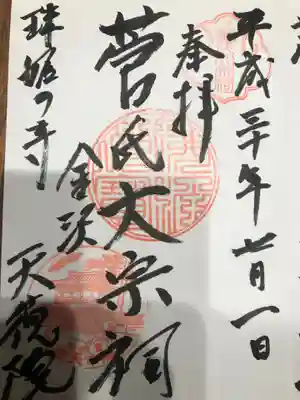 平成三十年七月一日
奉拝
菅氏大宗祠
金沢
珠姫の寺
天徳院